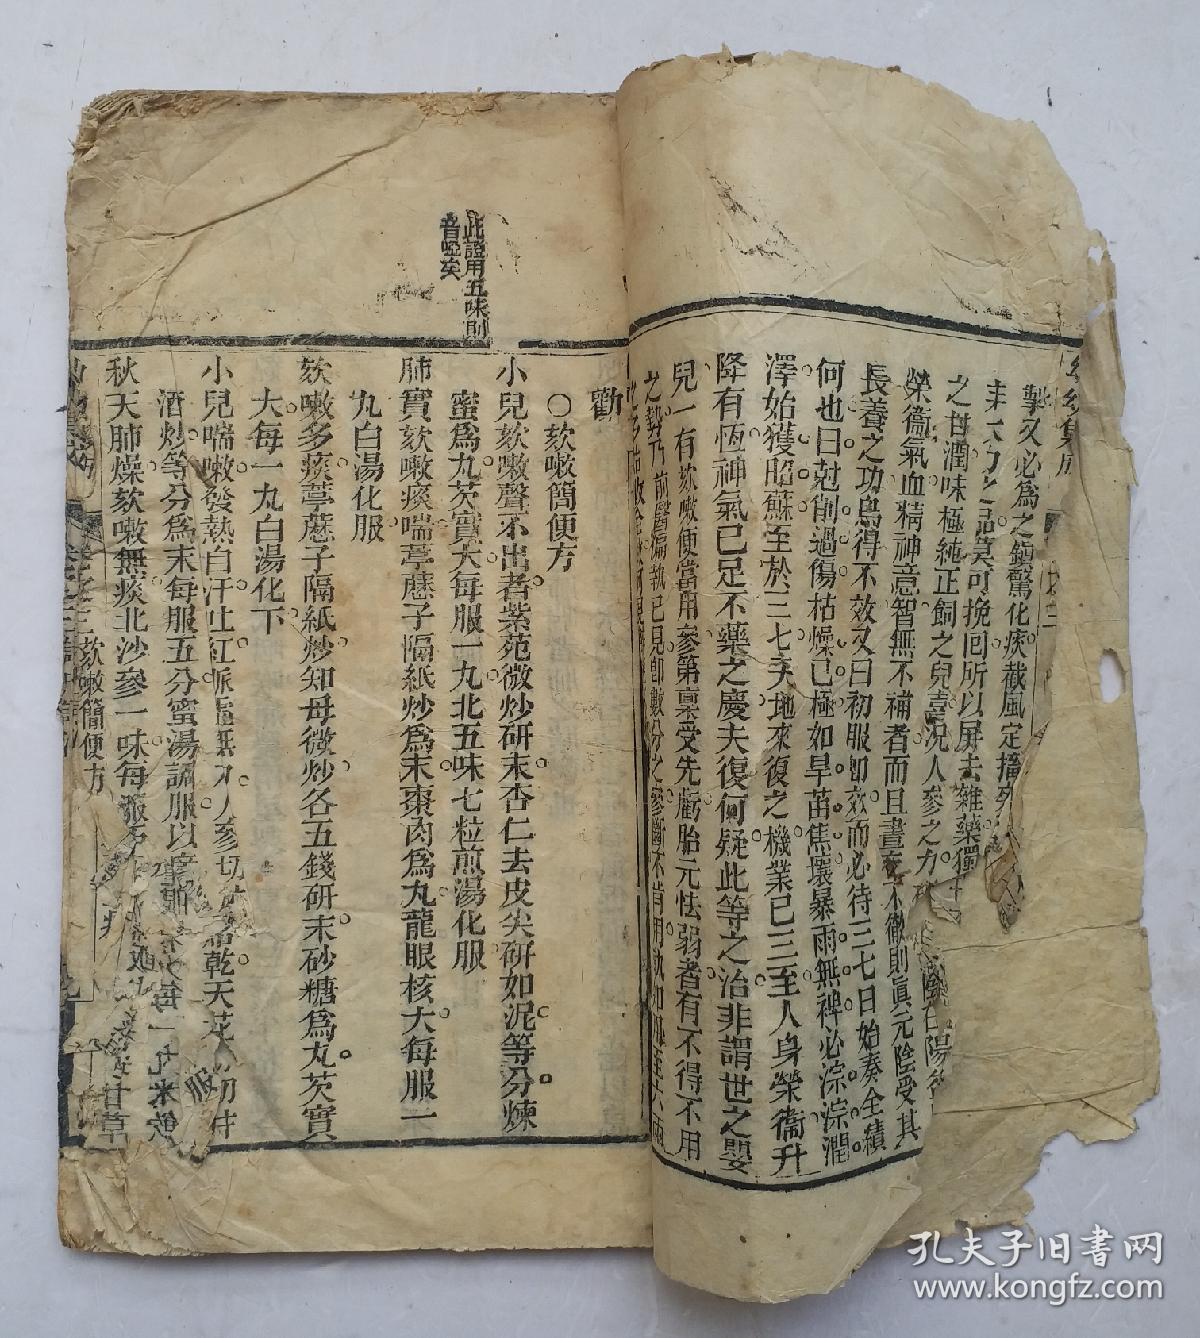 幼幼集成
搫又必為之鎮驚化痰截風定搐
大力之品莫可挽囘所以屏去雜藥獨
之甘潤味極純正飼之兒喜況人參之力
榮衞氣血精神意智無不補者而且晝夜不徹則眞元陰受其
長養之功烏得不效又曰初服卽效而必待三七日始奏全績
何也曰尅削過傷枯燥已極如旱苗焦壞暴雨無裨必淙淙潤
澤始獲昭蘇至於三七天地來復之機業已三至人身榮衞升
降有恆神氣已足不藥之慶夫復何疑此等之治非謂世之嬰
兒一有欬嗽便當用參第稟受先虧胎元怯弱者有不得不用
之勢乃前醫偏執已見卽數分之參斷不肯用
勸
〇欬嗽簡便方
此證用五味則
音啞矣
小兒欬嗽聲不出者紫苑微炒研末杏仁去皮尖研如泥等分煉
蜜為九芡實大每服一九北五味七粒煎湯化服
肺實欬嗽痰喘葶藶子隔紙炒為末棗肉為九龍眼核大每服一
九白湯化服
欬嗽多痰葶藶子隔紙炒知母微炒各五錢研末砂糖為九芡實
大每一九白湯化下
小兒喘嗽發熱自汗吐紅脈虛無力人參切 乾天花 切
酒炒等分為末每服五分蜜湯調服以
秋天肺燥欬嗽無痰北沙參一味每服
大每一丸米飲
甘草
欬嗽簡便方
孔夫子旧书网
www.kongfz.com